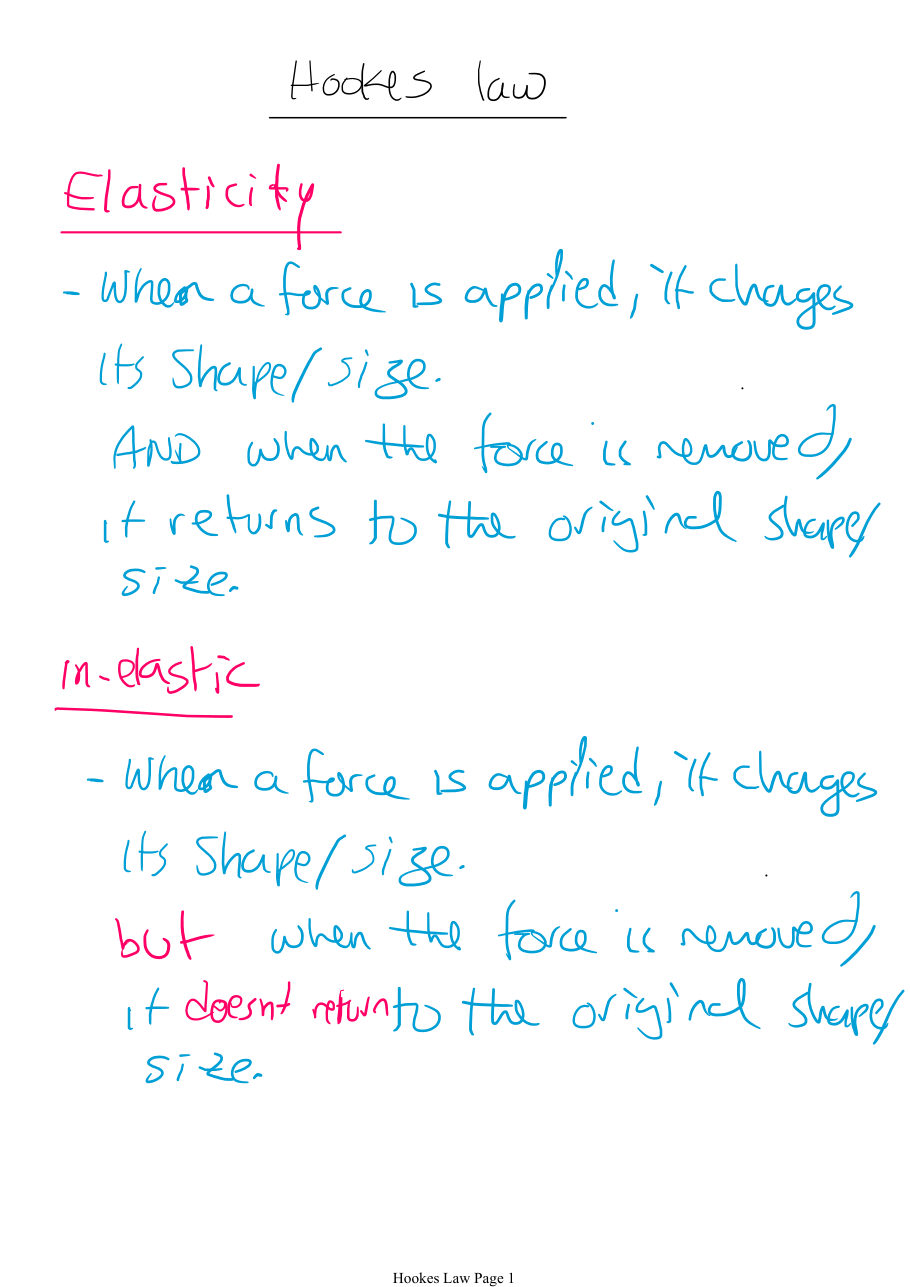 Hookes law
Elasticity
- When a force is applied, it chages
its shape/size.
AND when the force is removed,
it returns to the original shape/
size.
in-elastic
- When a force is applied, it chages
its shape/size.
but when the force is removed,
it doesnt return to the original shape/
size.
Hookes Law Page 1